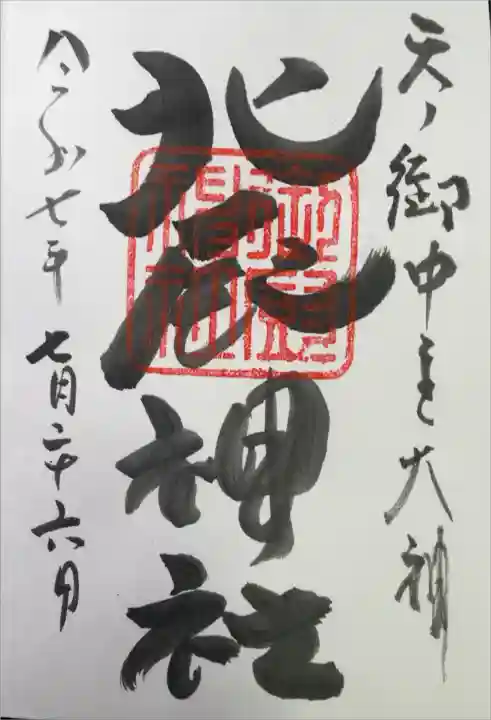 天ノ御中主大神
北辰神社
令和七年七月二十六日